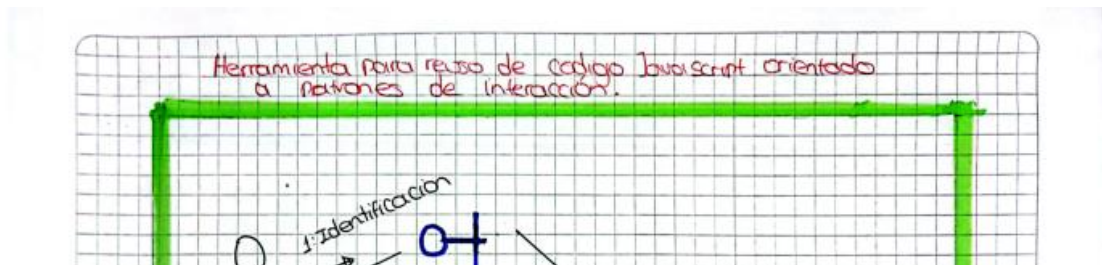 Herramienta para reuso de codigo Javascript orientado
a patrones de interacción.
1: Identificacion